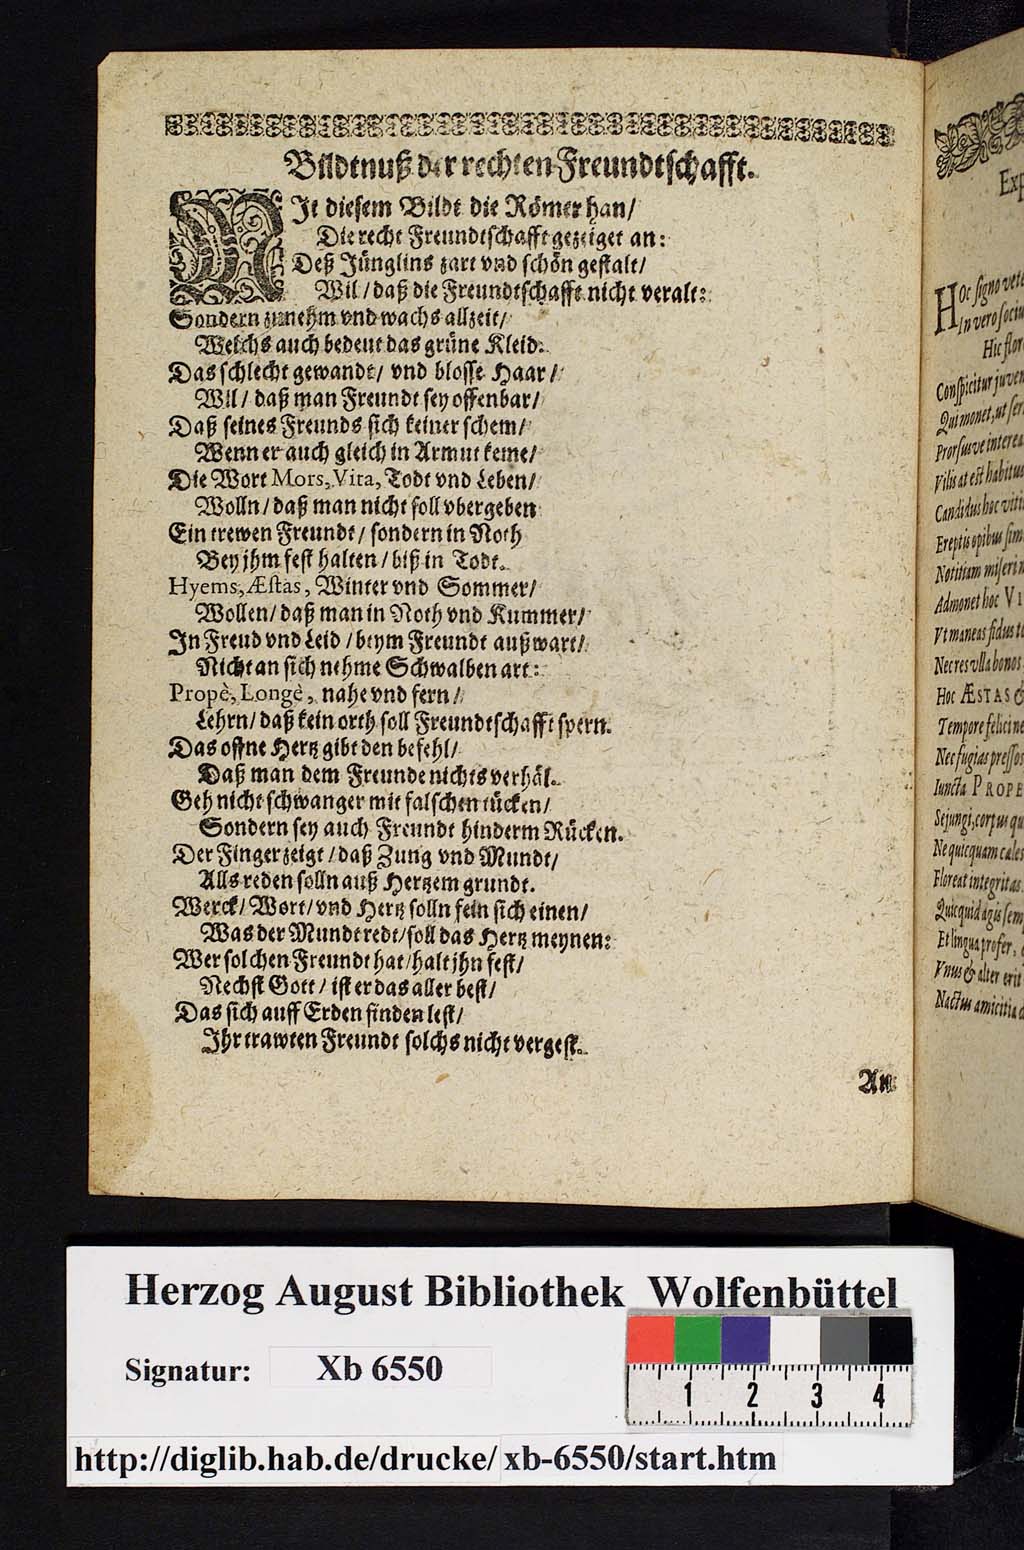 Bildtnuß der rechten Freundtschafft.
MIt diesem Bildt die Römer han/
Die recht Freundtschafft gezeiget an:
Deß Jünglins zart vnd schön gestalt/
Wil/ daß die Freundtschafft nicht veralt:
Sondern zunehm vnd wachs allzeit/
Welchs auch bedeut das grüne Kleid.
Das schlecht gewandt/ vnd blosse Haar/
Wil/ daß man Freundt sey offenbar/
Daß seines Freunds sich keiner schem/
Wenn er auch gleich in Armut keme/
Die Wort Mors, Vita, Todt vnd Leben/
Wolln/ daß man nicht soll vbergeben
Ein trewen Freundt/ sondern in Noth
Bey jhm fest halten/ biß in Todt.
Hyems, Æstas, Winter vnd Sommer/
Wollen/ daß man in Noth vnd Kummer/
In Freud vnd Leid/ beym Freundt außwart/
Nicht an sich nehme Schwalben art:
Propè, Longè, nahe vnd fern/
Lehrn/ daß kein orth soll Freundtschafft spern.
Das offne Hertz gibt den befehl/
Daß man dem Freunde nichts verhäl.
Geh nicht schwanger mit falschen tücken/
Sondern sey auch Freundt hinderm Rücken.
Der Finger zeigt/ daß Zung vnd Mundt/
Alls reden solln auß Hertzem grundt.
Werck/ Wort/ vnd Hertz solln fein sich einen/
Was der Mundt redt/ soll das Hertz meynen:
Wer solchen Freundt hat/ halt jhn fest/
Nechst Gott/ ist er das aller best/
Das sich auff Erden finden lest/
Ihr trawten Freundt solchs nicht vergest.
An
Exp
HOc signo vete
In vero sociu
Hic flor
Conspicitur juven
Qui monet, ut ser
Prorsus ve interea
Vilis at est habitus
Candidus hoc viti
Ereptis opibus sim
Notitiam miseri n
Admonet hoc VI
Vt maneas fidus to
Nec res vlla bonos
Hoc ÆSTAS &
Tempore felici ne
Nec fugias presso
Iuncta PROPE
Sejungi, corpus qu
Ne quicquam cales
Floreat integritas
Quicquid agis sem
Et lingua profer,
Vnus & alter erit
Nactus amicitia
Herzog August Bibliothek Wolfenbüttel
Signatur: Xb 6550
1 2 3 4
http://diglib.hab.de/drucke/xb-6550/start.htm